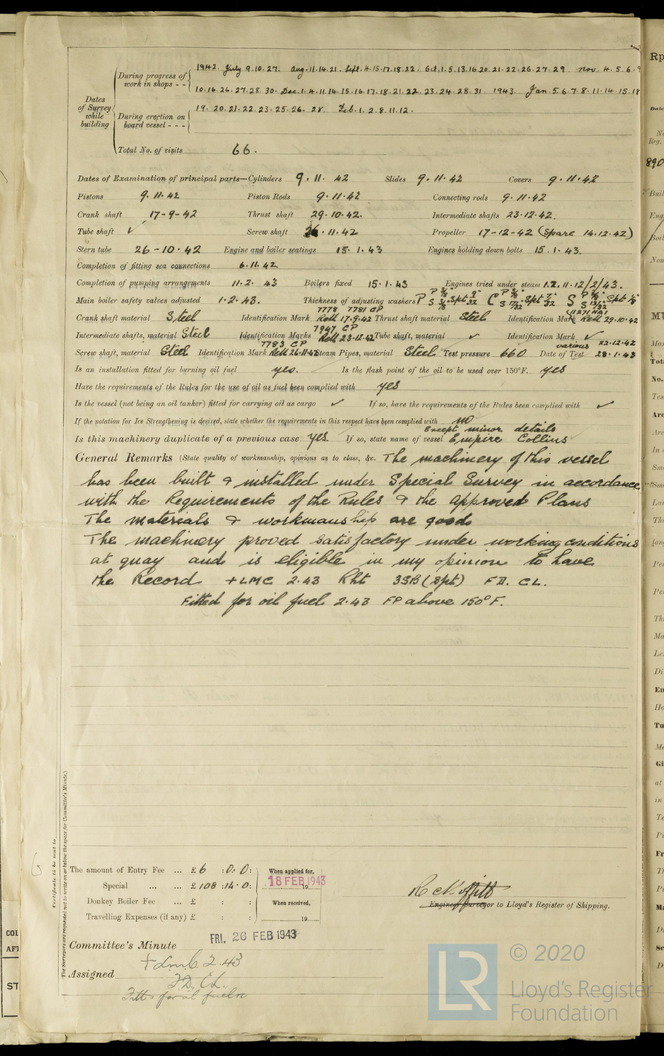 1942 July 9.10.27. Aug.11.14.21. Sept.4.15.17.18.22. Oct.1.5.13.16.20.21.22.26.27.29 Nov.4.5.6.9
During progress of work in shops - -
10.16.26.27.28.30. Dec.1.4.11.14.15.16.17.18.21.22.23.24.28.31. 1943. Jan.5.6.7.8.11.14.15.18
Dates of Survey while building
During erection on board vessel - - -
19.20.21.22.23.25.26.28 Feb.1.2.8.11.12.
Total No. of visits 66.
Dates of Examination of principal parts—Cylinders 9.11.42 Slides 9.11.42 Covers 9.11.42
Pistons 9.11.42 Piston Rods 9.11.42 Connecting rods 9.11.42
Crank shaft 17-9-42 Thrust shaft 29.10.42. Intermediate shafts 23.12.42.
Tube shaft ✓ Screw shaft 26.11.42 Propeller 17-12-42 (Spare 14.12.42)
Stern tube 26-10-42 Engine and boiler seatings 15.1.43 Engines holding down bolts 15.1.43.
Completion of fitting sea connections 6.11.42.
Completion of pumping arrangements 11.2.43 Boilers fixed 15.1.43 Engines tried under steam 1.2.11.12/2/43.
Main boiler safety valves adjusted 1.2.43. Thickness of adjusting washers
7778 7781 CP
Crank shaft material Steel Identification Mark RCM 17.9.42 Thrust shaft material Steel Identification Mark RCM 29.10.42
7947 CP
Intermediate shafts, material Steel Identification Marks RCM 23.12.42 Tube shaft, material ✓ Identification Mark ✓
7783 CP various 22.12.42
Screw shaft, material Steel Identification Mark RCM 26.11.42 Steam Pipes, material Steel Test pressure 660 Date of Test 28.1.43
Is an installation fitted for burning oil fuel yes. Is the flash point of the oil to be used over 150°F. yes
Have the requirements of the Rules for the use of oil as fuel been complied with yes
Is the vessel (not being an oil tanker) fitted for carrying oil as cargo ✓ If so, have the requirements of the Rules been complied with ✓
If the notation for Ice Strengthening is desired, state whether the requirements in this respect have been complied with no
Except minor details
Is this machinery duplicate of a previous case yes If so, state name of vessel Empire Collins
General Remarks (State quality of workmanship, opinions as to class, &c. The machinery of this vessel
has been built & installed under Special Survey in accordance
with the Requirements of the Rules & the approved Plans
The materials & workmanship are good
The machinery proved satisfactory under working conditions
at quay and is eligible in my opinion to have
the Record +LMC 2.43 Rht 3SB(Spt) FD. CL.
Fitted for oil fuel 2.43 FP above 150°F.
Certificate to be sent to
(The Surveyors are requested not to write on or below the space for Committee's Minute.)
The amount of Entry Fee ... £ 6 : 0 : 0 : When applied for,
Special ... ... £ 108 : 14 : 0 : 18 FEB 1943 19
Donkey Boiler Fee ... £ : : When received,
Travelling Expenses (if any) £ : : 19
Engineer Surveyor to Lloyd's Register of Shipping.
Committee's Minute FRI. 26 FEB 1943
Assigned + Lmc 2.43
FD. CL.
Fitted for oil fuel
LR © 2020
Lloyd's Register
Foundation